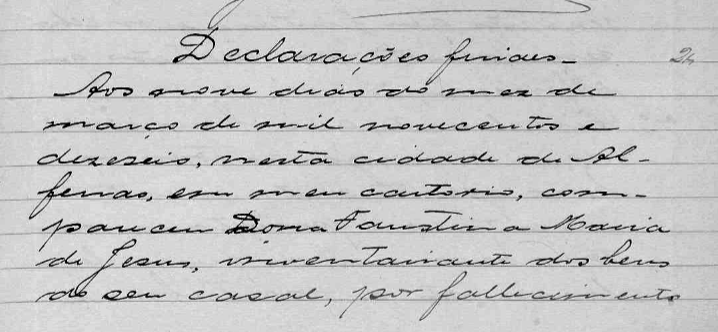 Declarações finaes_ 24
Aos nove dias do mez de
março de mil novecentos e
dezeseis, nesta cidade de Al-
fenas, em meu cartorio, com-
pareceu Dona Faustina Maria
de Jesus, inventariante dos bens
do seu casal, por fallecimento